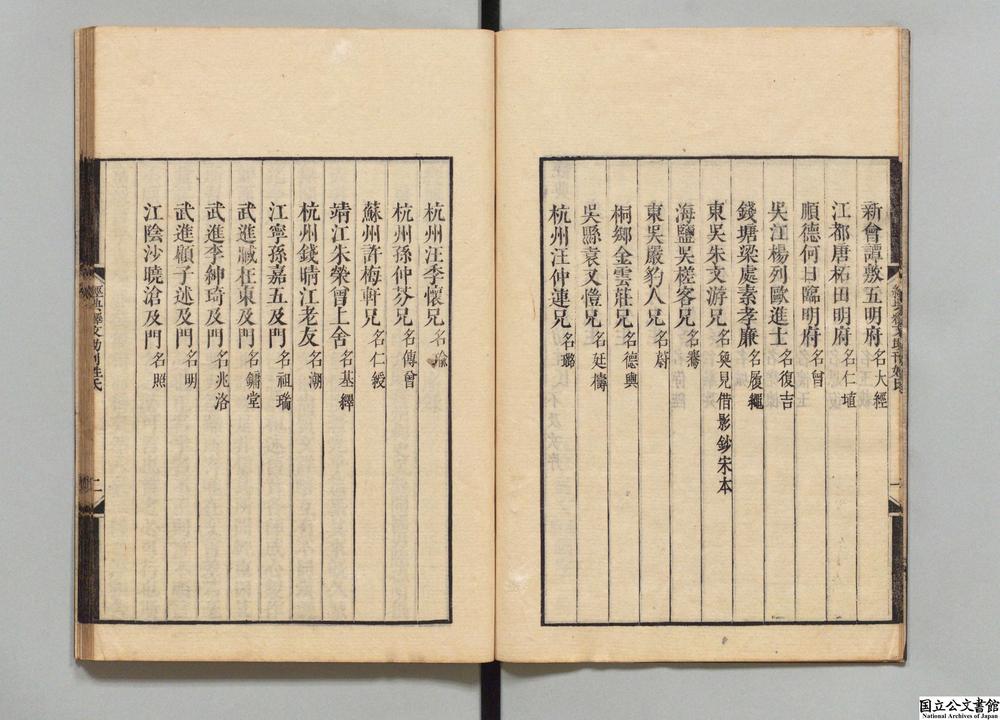 新會譚敷五明府名大經
江都唐柘田明府名仁埴
順德何日臨明府名曾
吳江楊列歐進士名復吉
錢塘梁處素孝廉名履繩
東吳朱文游兄名奐見借影鈔宋本
海鹽吳槎客兄名騫
東吳嚴豹人兄名蔚
桐鄉金雲莊兄名德輿
吳縣袁又愷兄名廷檮
杭州汪仲連兄名璐
杭州汪季懷兄名瑜
杭州孫仲芬兄名傳曾
蘇州許梅軒兄名仁緩
靖江朱榮曾上舍名基繹
杭州錢晴江老友名潮
江寧孫嘉五及門名祖瑞
武進臧在東及門名鏞堂
武進李紳琦及門名兆洛
武進顧子述及門名明
江陰沙曉滄及門名照
經典釋文助刊姓氏
二
国立公文書館
National Archives of Japan